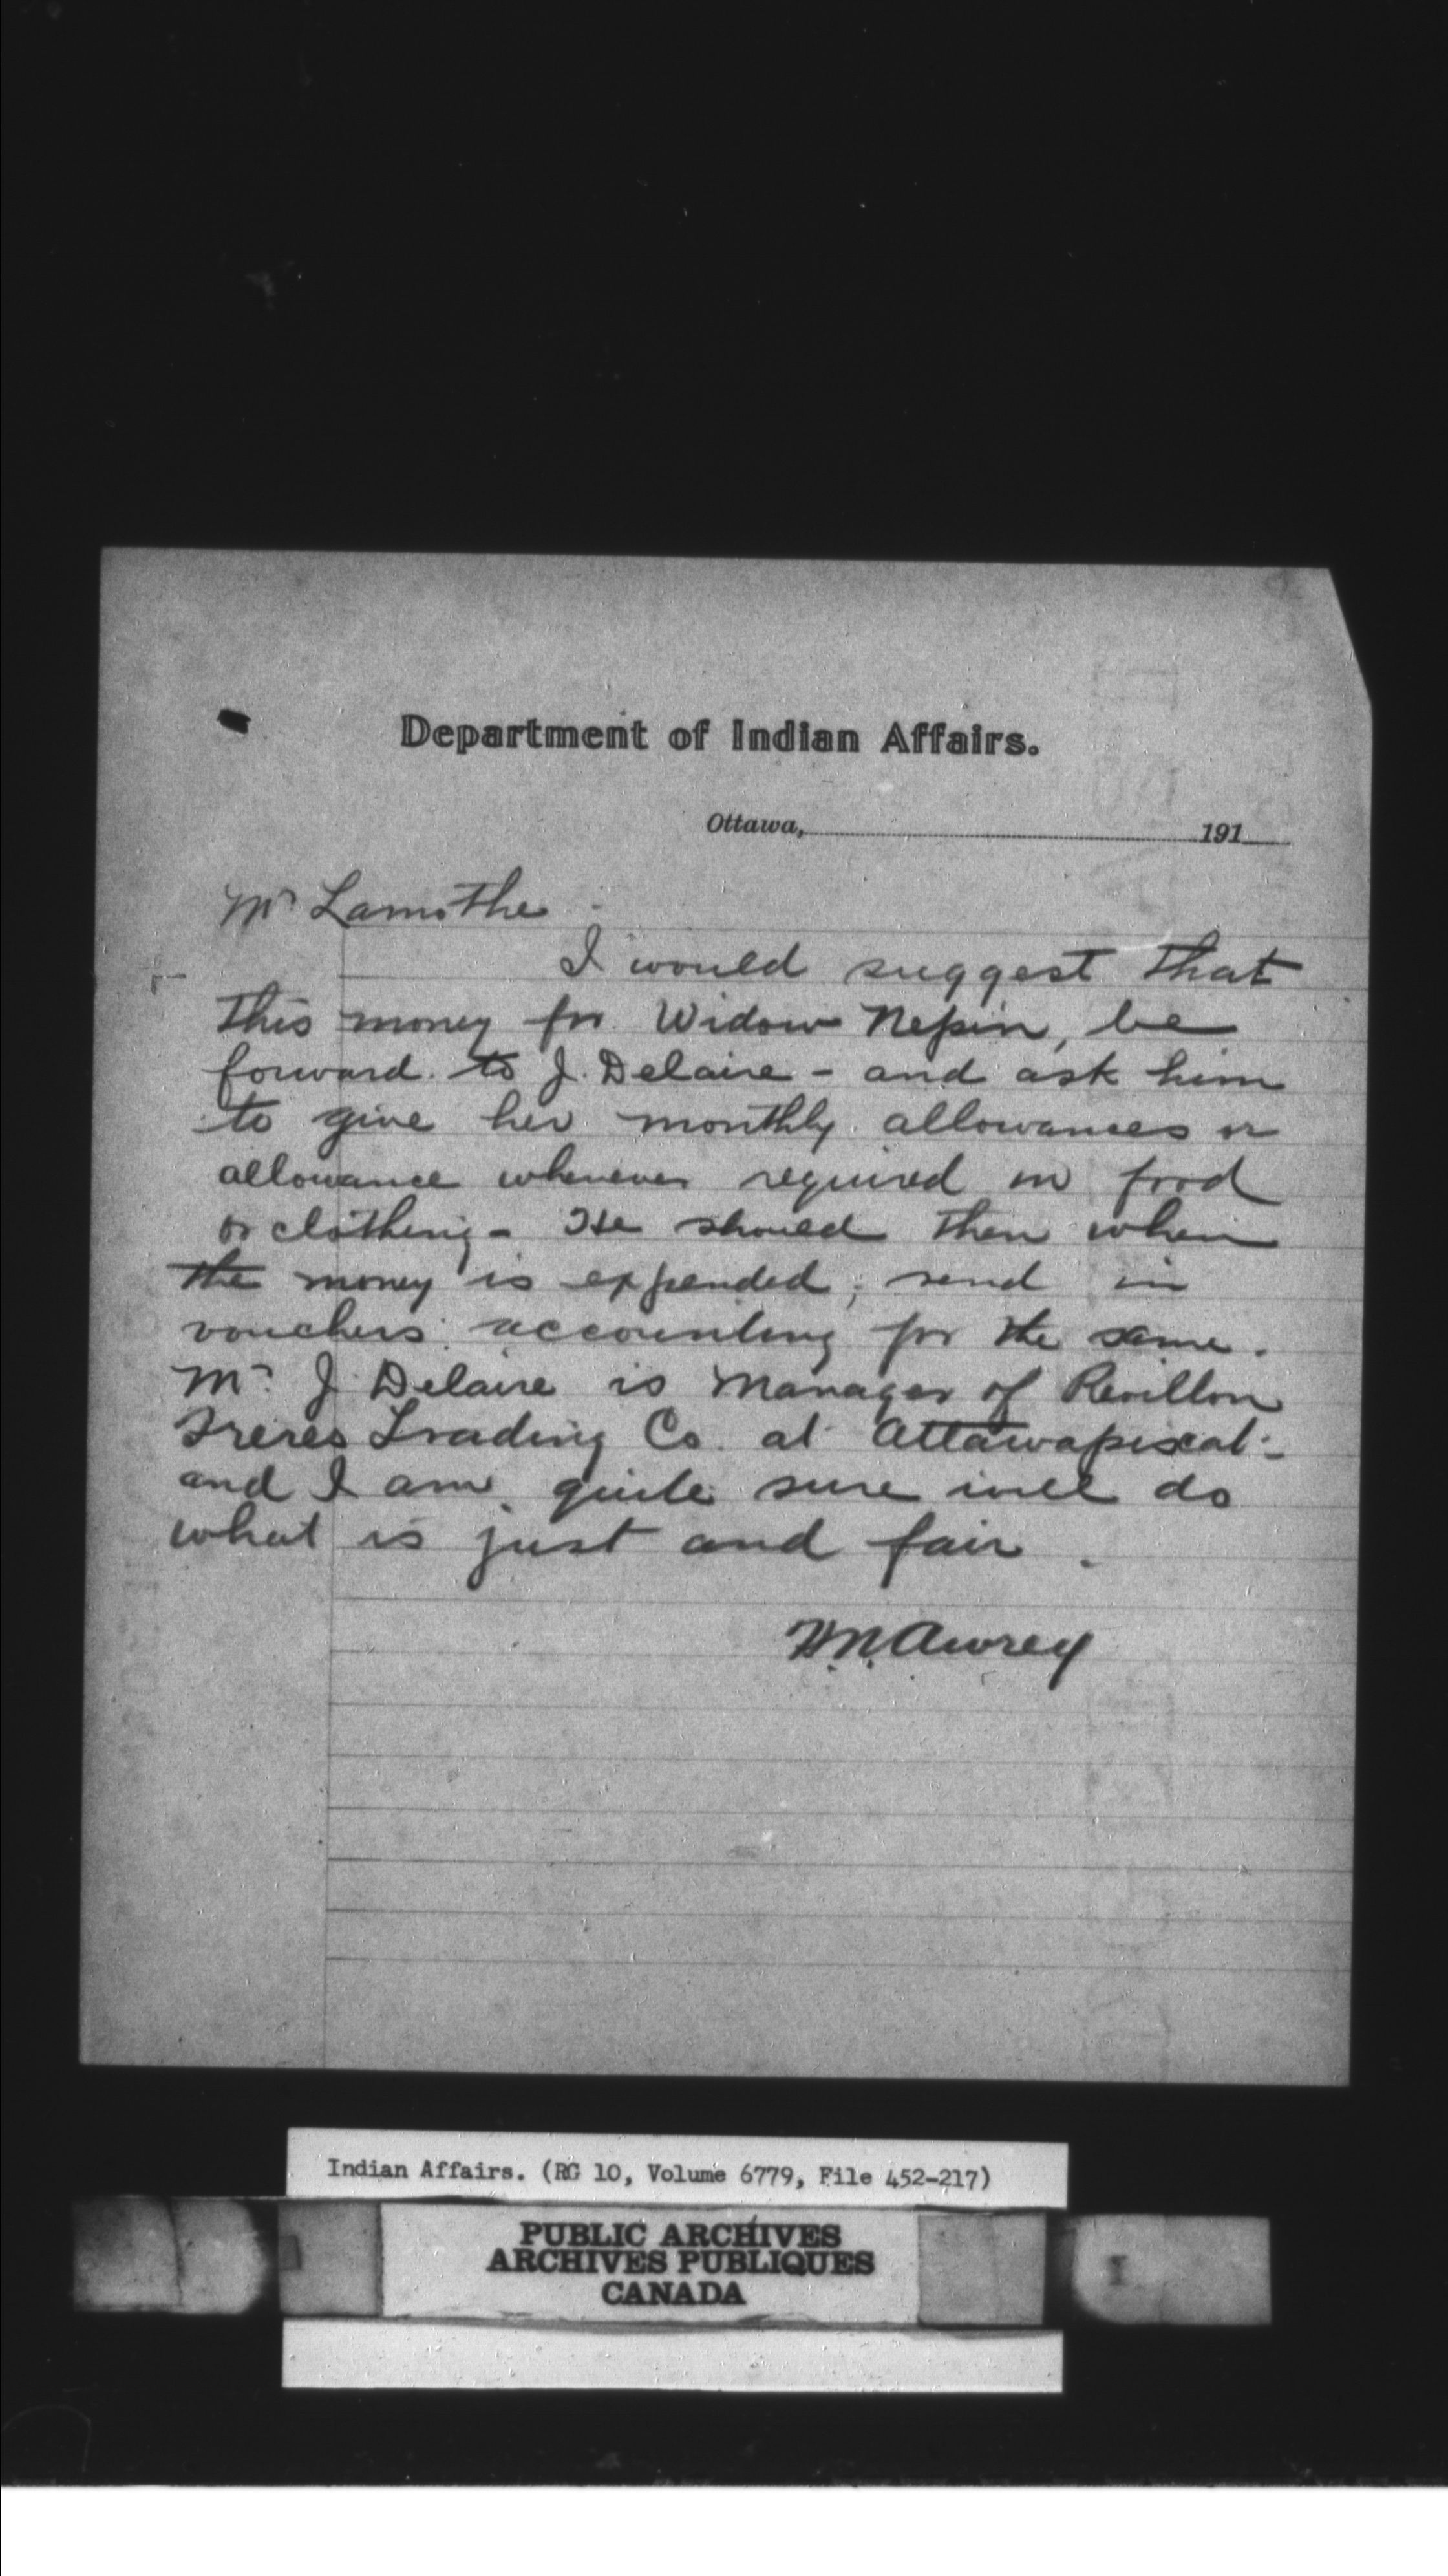 Department of Indian Affairs.
Ottawa, 191
Mr Lamothe -
I would suggest that
this money for Widow Nepin, be
forward to J. Delaire - and ask him
to give her monthly allowances or
allowance whenever required in food
or clothing - He should then when
the money is expended, send in
vouchers accounting for the same.
Mr. J Delaire is Manager of Revillon
Freres Trading Co. at Attawapiscat -
and I am quite sure will do
what is just and fair.
H.N. Awrey
Indian Affairs. (RG 10, Volume 6779, File 452-217)
PUBLIC ARCHIVES
ARCHIVES PUBLIQUES
CANADA